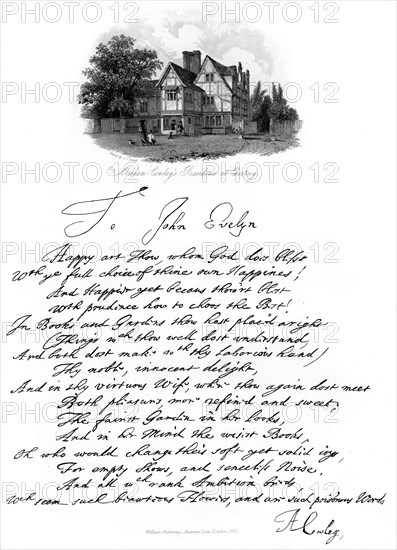 Abraham Cowley's Residence at Chertsey
To John Evelyn
Happy art Thou, whom God does bless
Wth ye full choice of thine own Happiness!
And Happier yet becaus thou'rt blest
Wth prudence how to choos the Best!
In Books and Gardens thou hast plac'd aright
(Things wch thou well dost understand
And both dost make wth thy laborious hand)
Thy noble, innocent delight,
And in thy virtuous Wife, wher thou again dost meet
Both pleasurs more refin'd and sweet;
The fairest Garden in her looks,
And in her Mind the wisest Books.
Oh who would change these soft yet solid joys,
For empty Shows, and senceless Noise,
And all wch rank Ambition brieds
Wch seem such beauteous Flowers, and are such poisonous Weeds
A Cowley,
William Pickering, Chancery Lane, London,
PHOTO 12